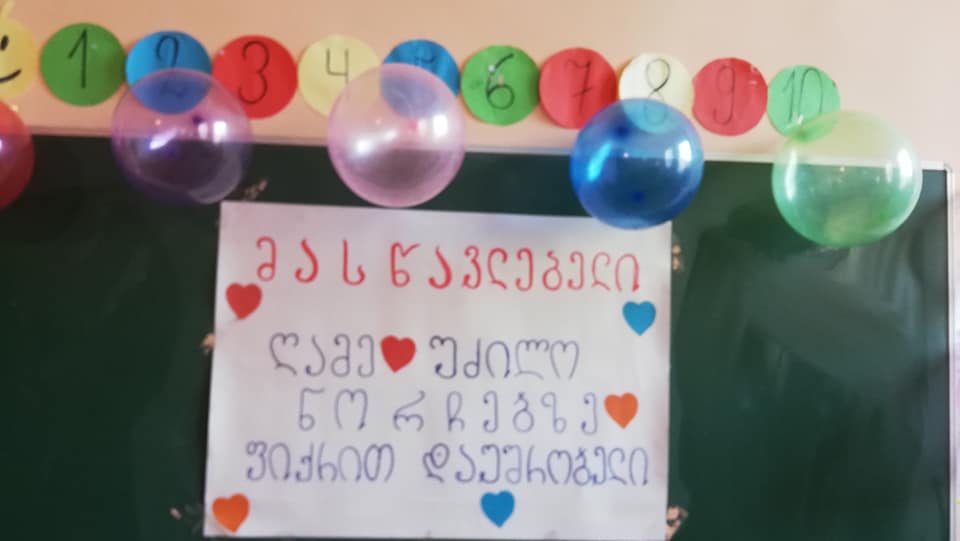 1 2 3 4 5 6 7 8 9 10
მასწავლებელი
ღამე უძილო
ნორჩებზე
ფიქრით დაუშრობელი